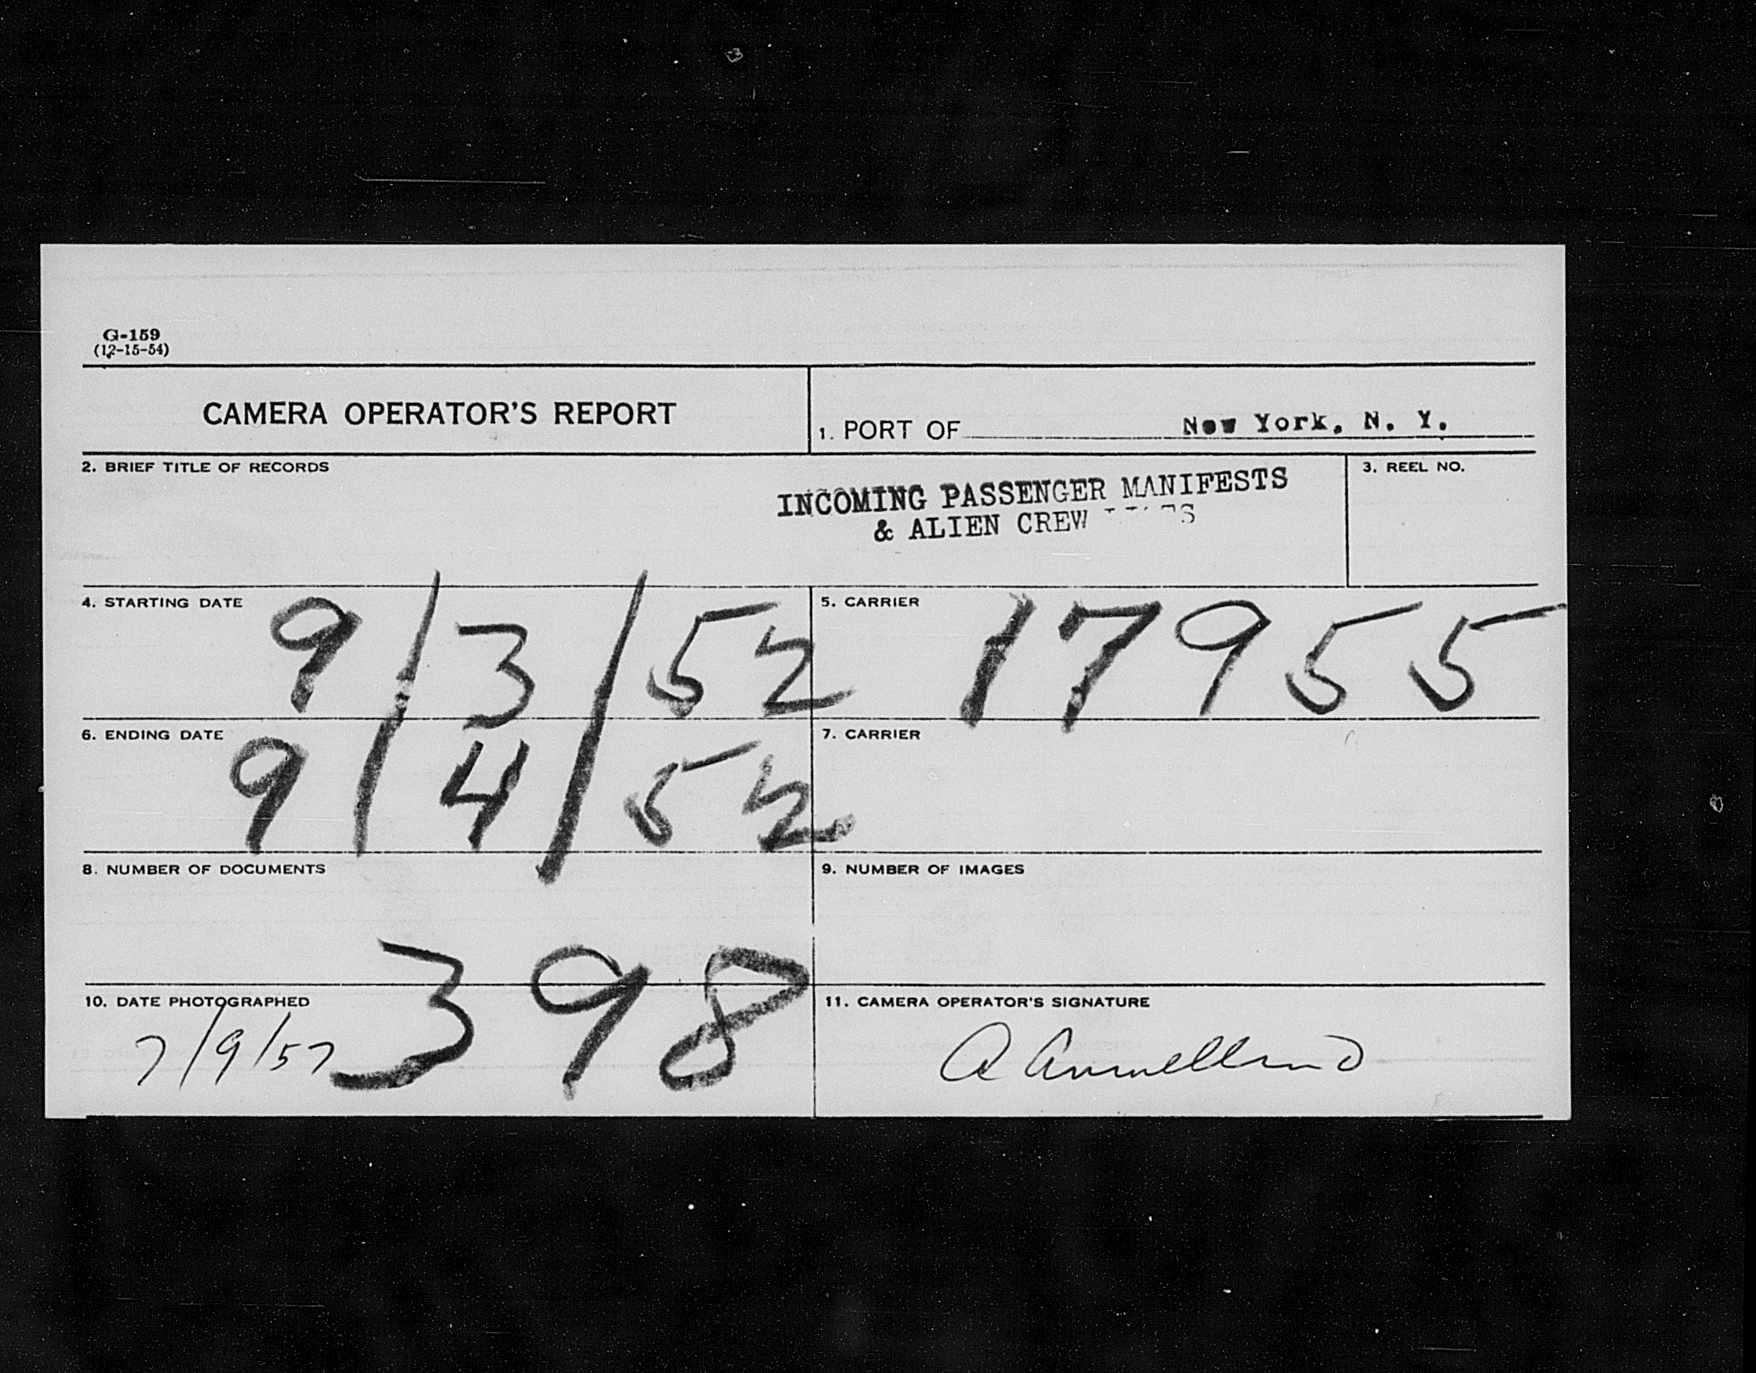 G-159
(12-15-54)
CAMERA OPERATOR'S REPORT
1. PORT OF New York, N. Y.
2. BRIEF TITLE OF RECORDS
INCOMING PASSENGER MANIFESTS
& ALIEN CREW
3. REEL NO.
4. STARTING DATE
9/3/52
5. CARRIER
17955
6. ENDING DATE
9/4/52
7. CARRIER
8. NUMBER OF DOCUMENTS
398
9. NUMBER OF IMAGES
10. DATE PHOTOGRAPHED
7/9/57
11. CAMERA OPERATOR'S SIGNATURE